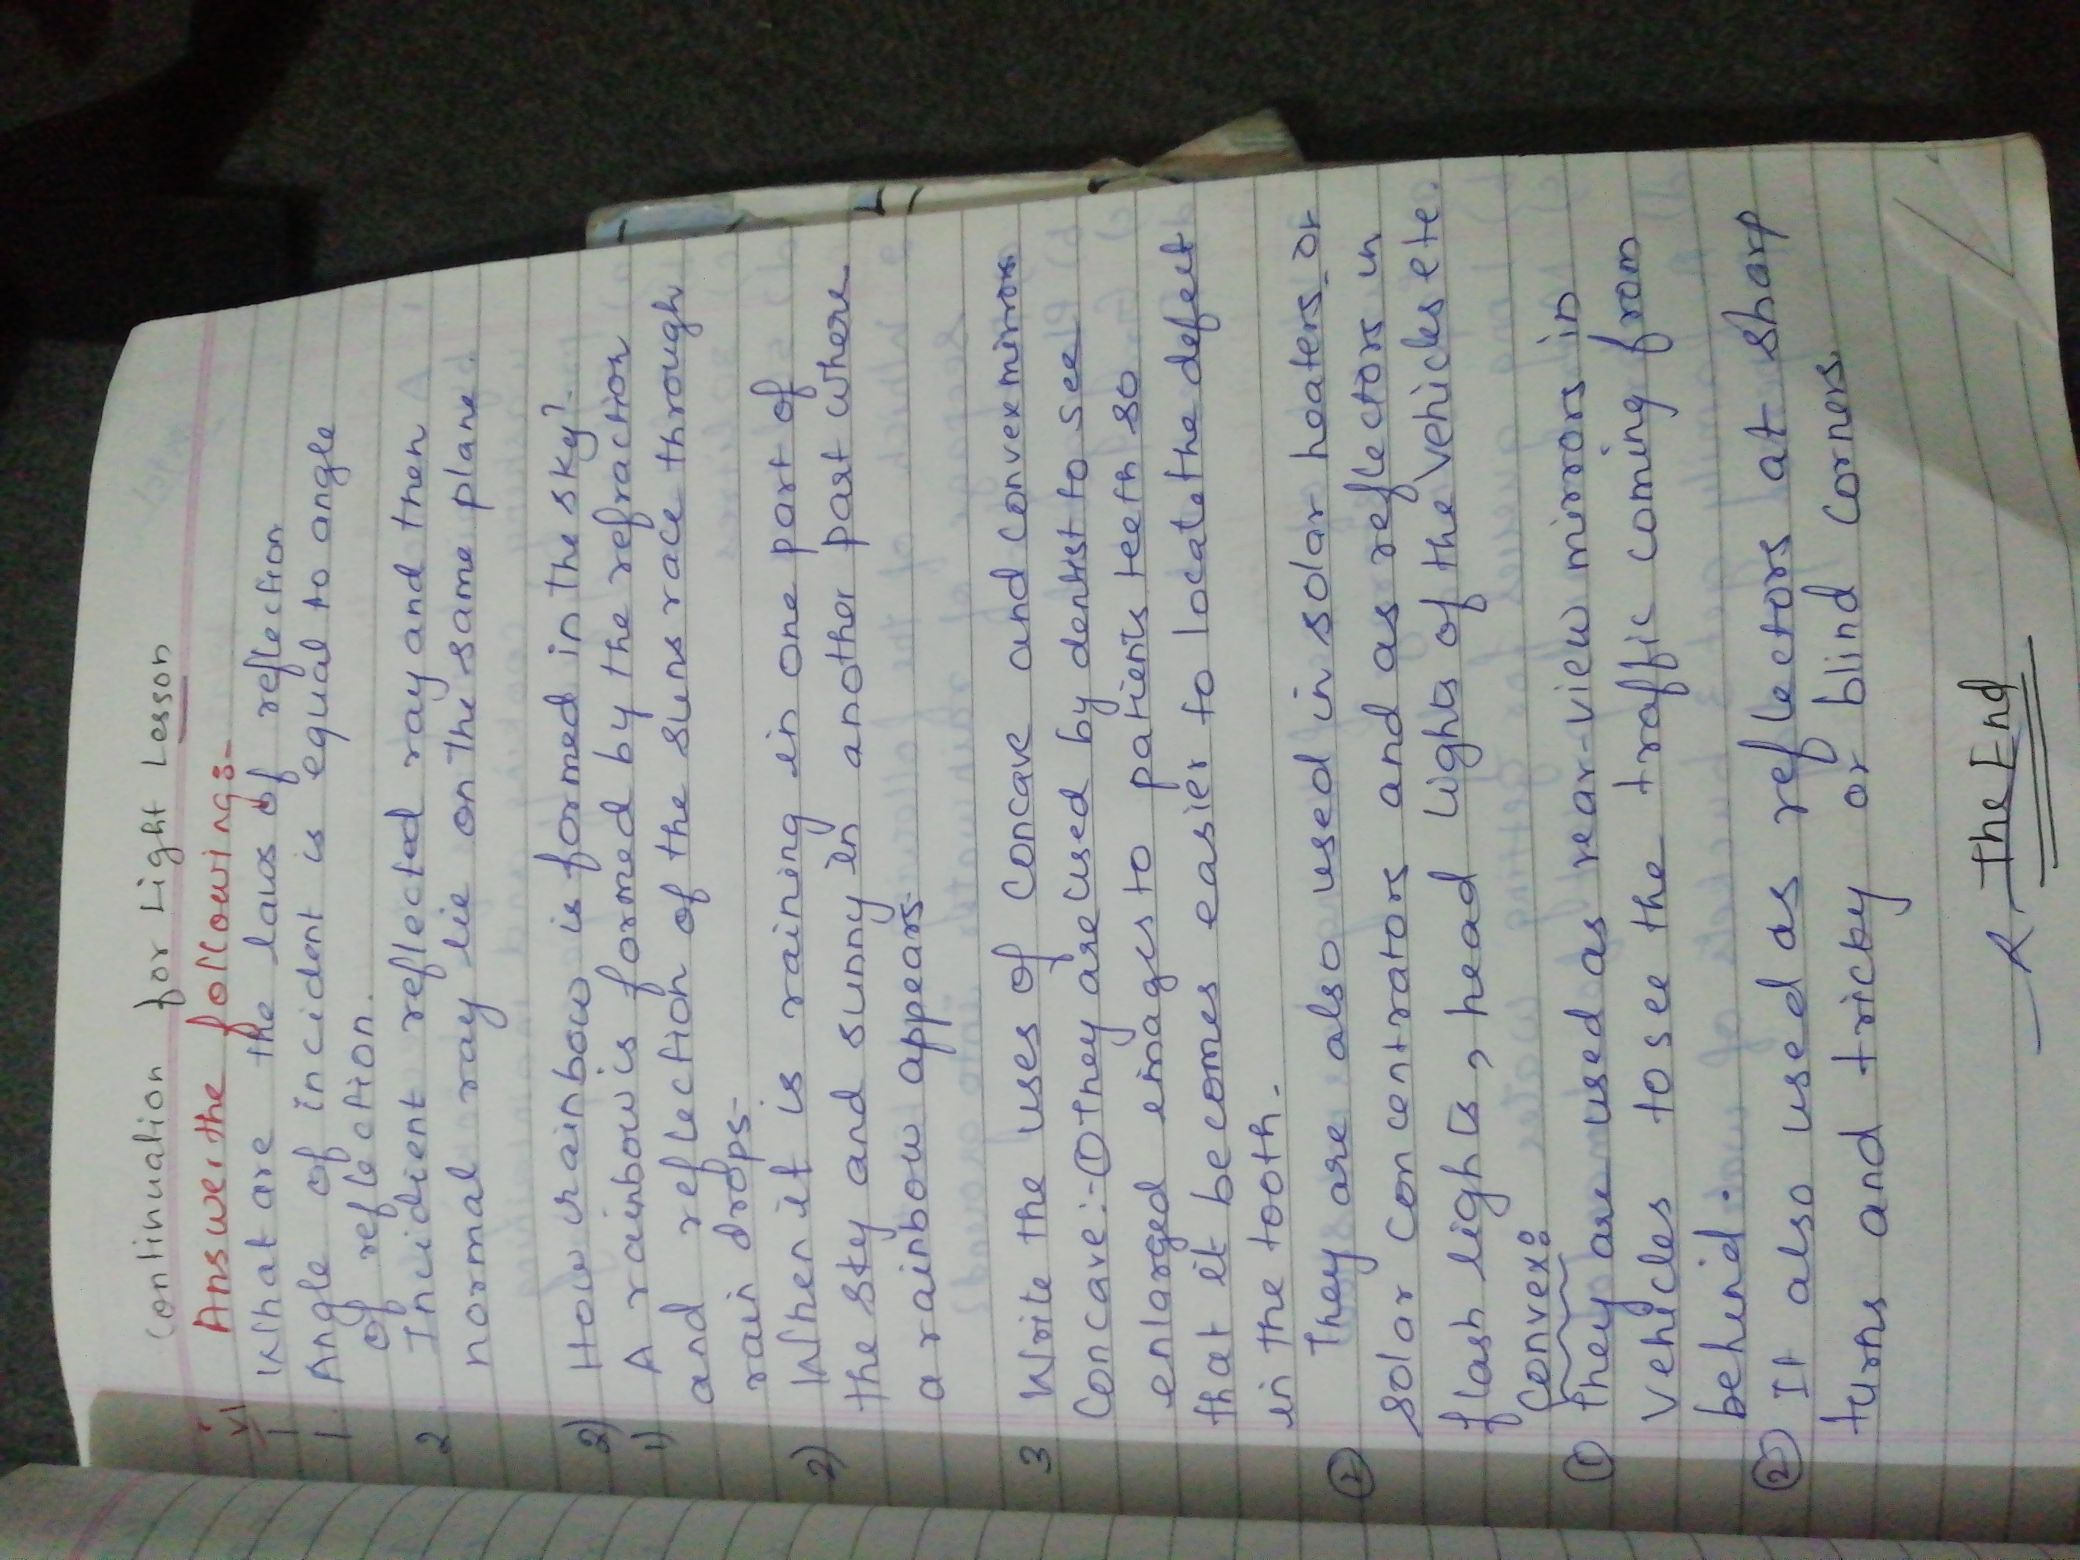 Continualion for Light Lesson
vi Answer the followings-
1 What are the laws of reflection
1. Angle of incident is equal to angle
of reflection.
2 Incident reflected ray and then
normal ray lie on the same plane.
2) How rainbow is formed in the sky?
1) A rainbow is formed by the refraction
and reflection of the suns race through
rain drops-
2) When it is raining in one part of
the sky and sunny in another part where
a rainbow appears.
3 Write the uses of concave and convex mirrors
Concave:- ① They are used by dentist to see
enlarged images to patients teeth so
that it becomes easier to locate the defeit
in the tooth.
② They are also used in solar heaters or
solar concentrators and as reflectors in
flash lights, head lights of the vehicles ete.
Convex:
① they are used as rear-view mirrors in
vehicles to see the traffic coming from
behind.
② It also used as reflectors at sharp
turns and tricky or blind corners.
The End